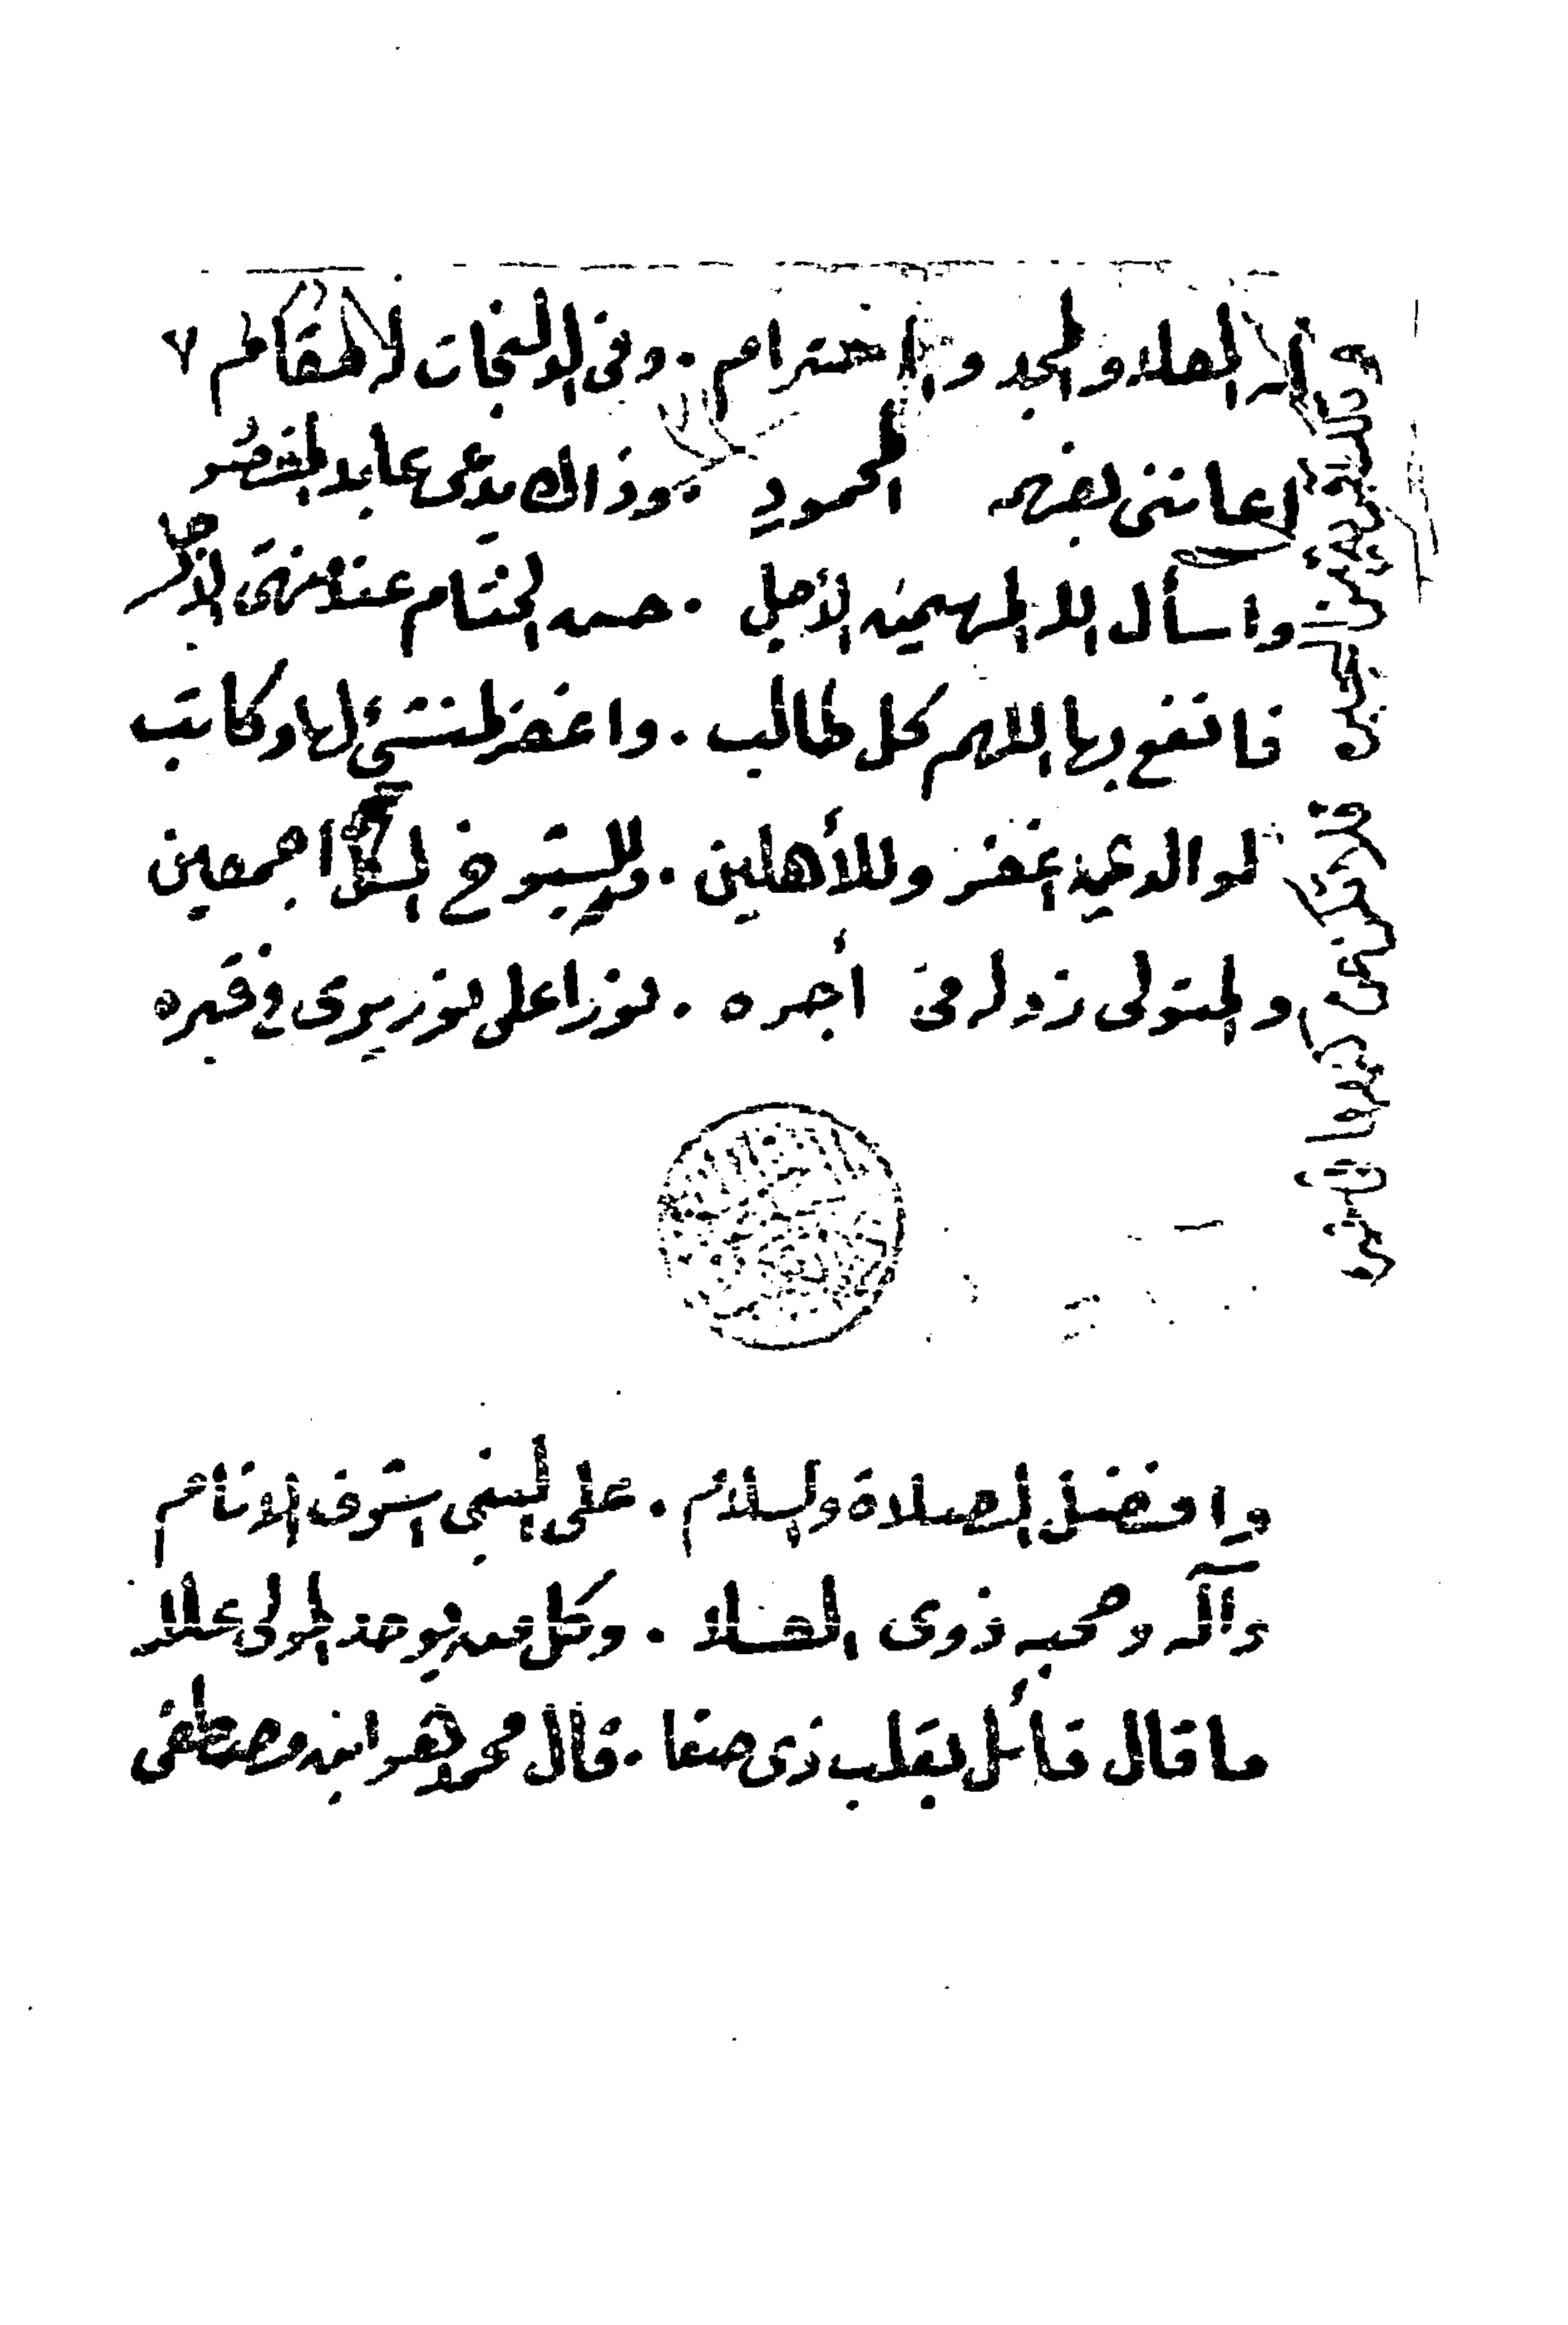 له العلا والمجد والاحترام . وفي الولنجات له المقام ٧
اعانني بفهمه المحمود . وذاك يدعى عابد المقصود
واسأل الله المهيمن الأجل . حسن الختام عند منتهى الاجل
فانفع بها اللهم كل طالب . واغفر لمنشئ لها وكاتب
لوالدي اغفر وللأهلين . وللشيوخ الكل اجمعين
والمتولى زد له في أجره . نورا على نور يرى في قبره
وافضل الصلاة والسلام . على النبي اشرف الانام
وآله وصحبه ذوى العلا . وكل من يوحد المولى علا
ما قال قائل بقلب ذى صفا . قال محمد هو ابن مصطفى